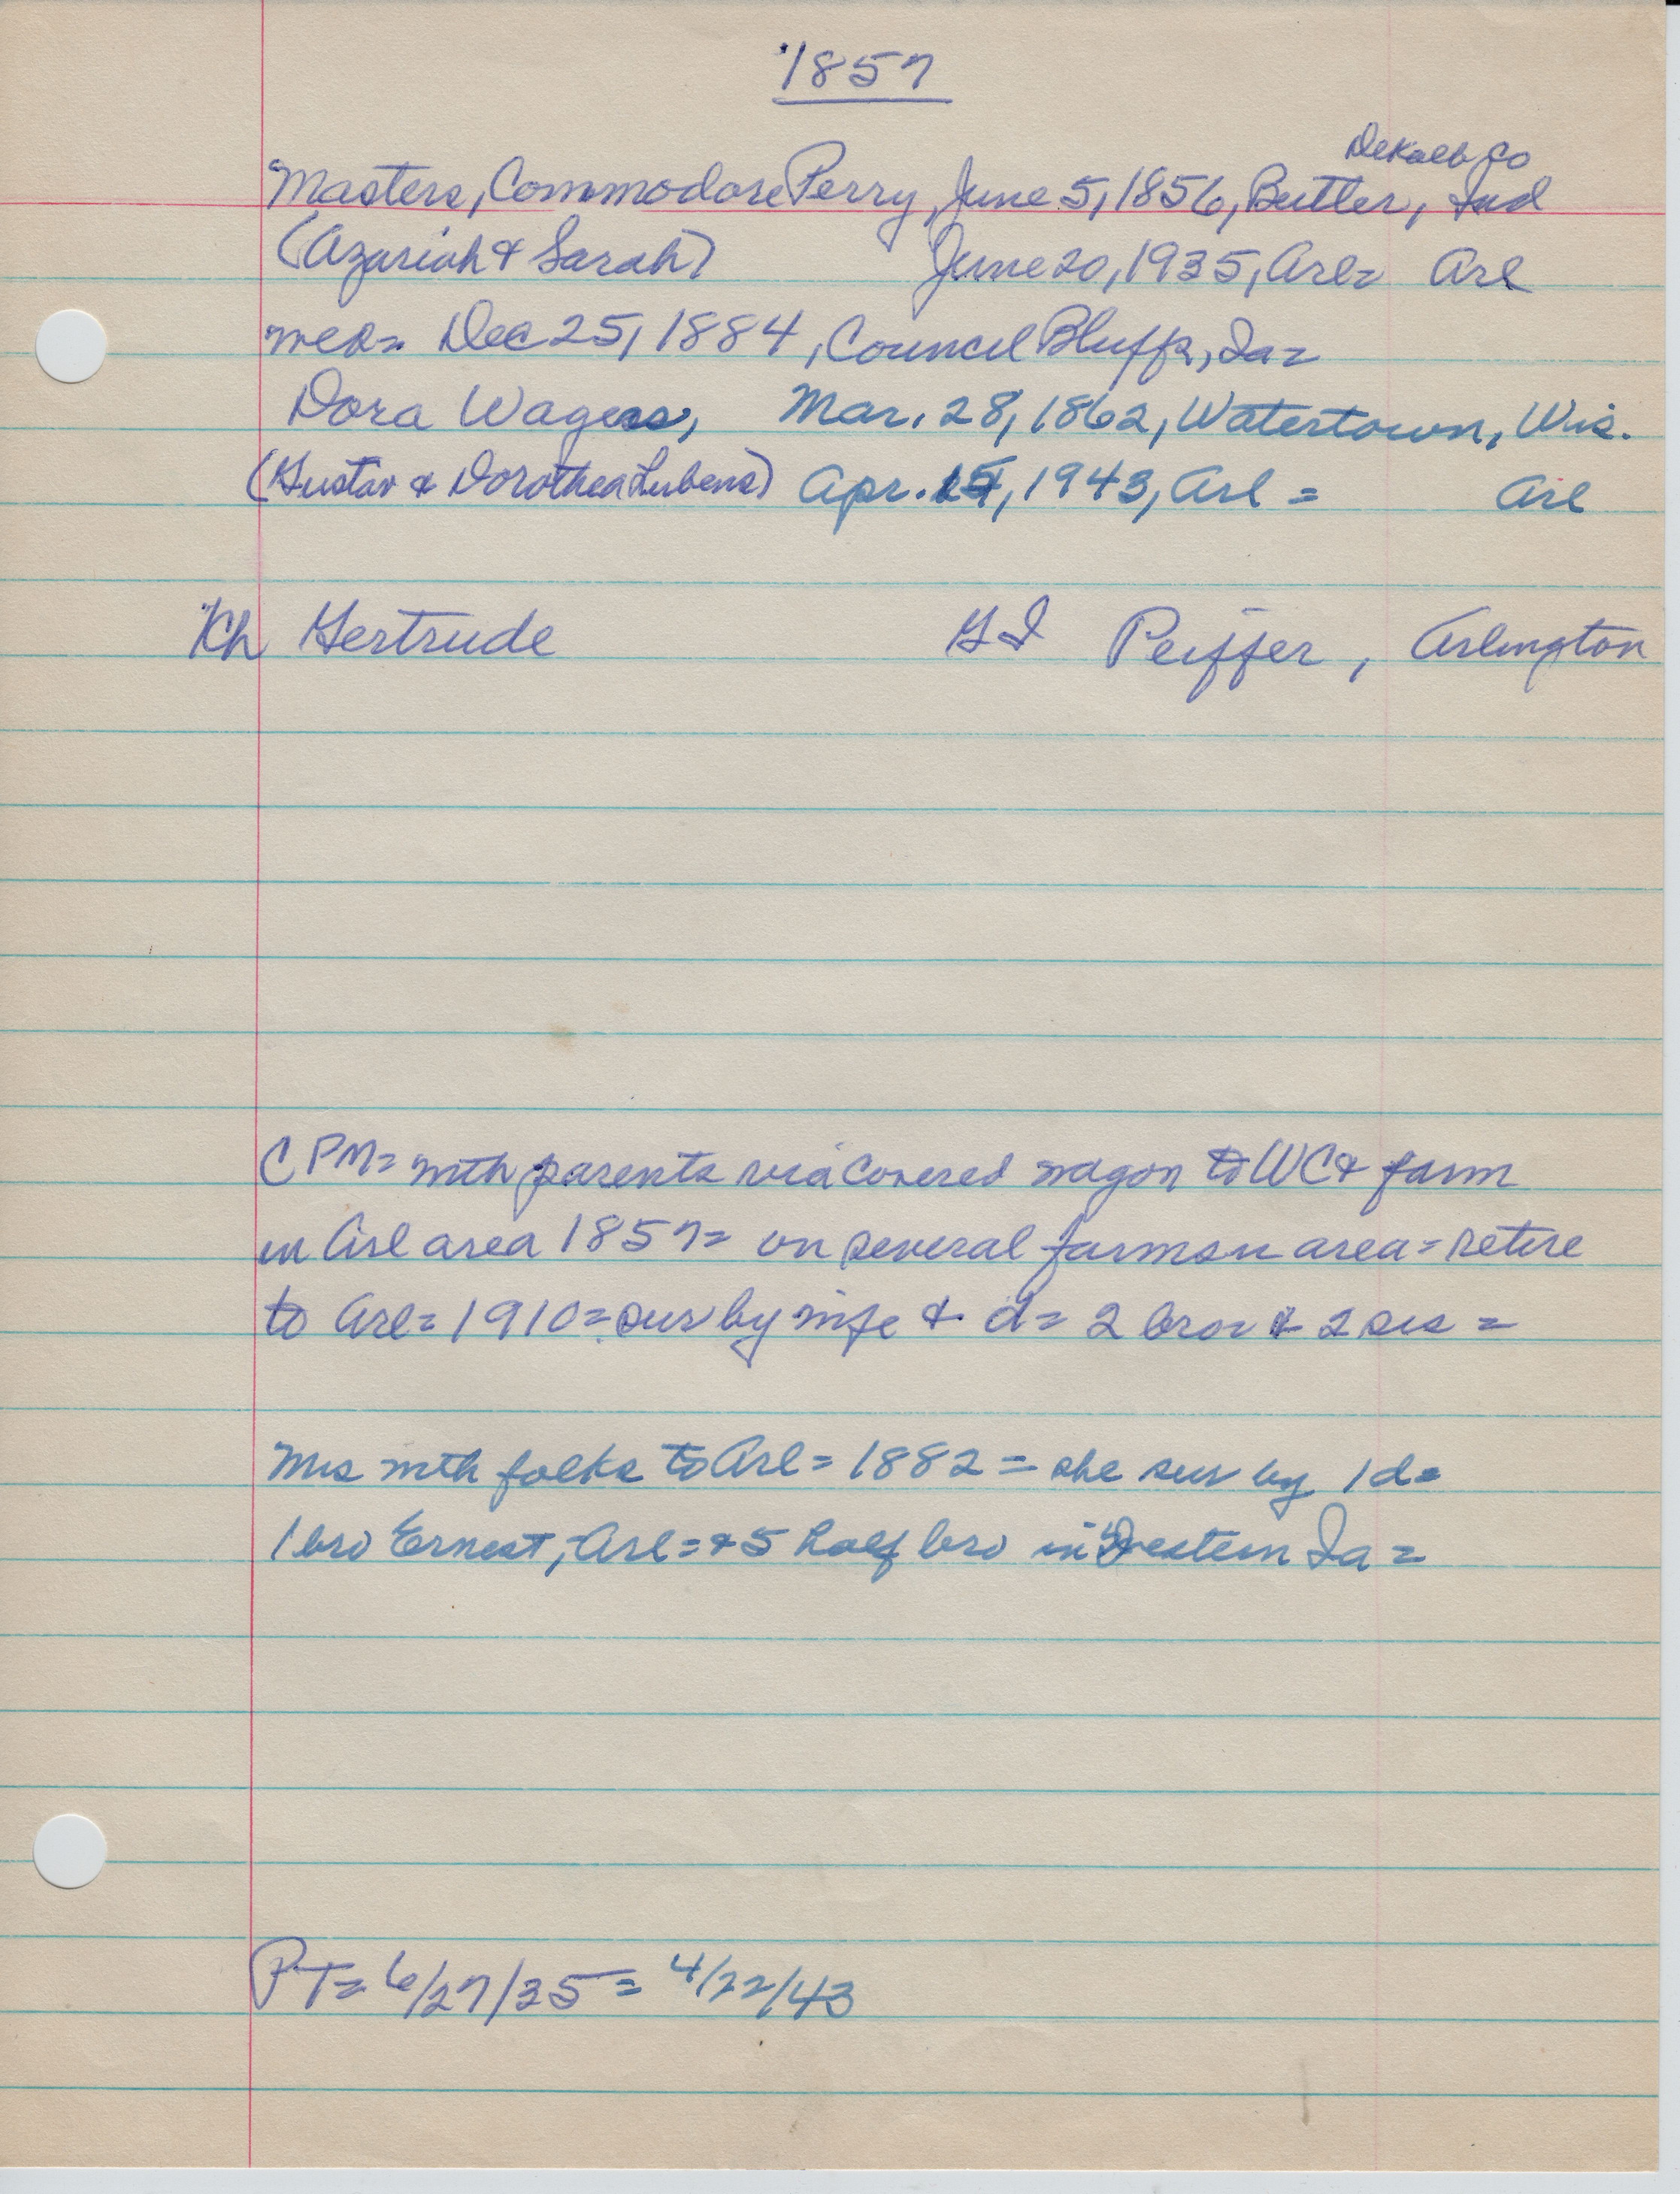 1857
DeKalb Co
Masters, Commodore Perry, June 5, 1856, Butler, Ind
(Azariah & Sarah) June 20, 1935, Arl= Arl
mer= Dec 25, 1884, Council Bluffs, Ia=
Dora Wagers, Mar. 28, 1862, Watertown, Wis.
(Gustav & Dorothea Lubens) Apr. 1943, Arl = Arl
Kh Gertrude G I Peiffer, Arlington
CPM= with parents via covered wagon to WC & farm
in Arl area 1857= on several farms in area= retire
to Arl= 1910= sur by wife & d= 2 bro= & 2 sis =
Mrs with folks to Arl= 1882 = she sur by 1 d=
1 bro Ernest, Arl= & 5 half bro in Western Ia =
PT= 6/27/35 = 4/22/43